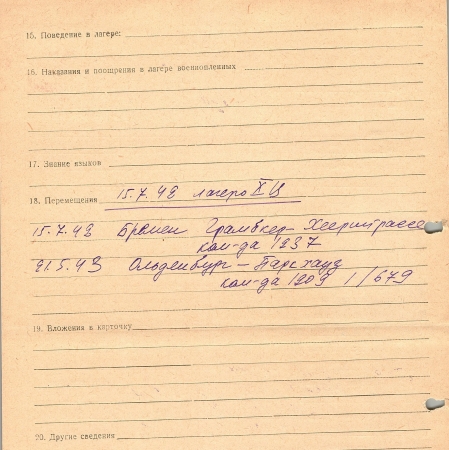 15. Поведение в лагере:
16. Наказания и поощрения в лагере военнопленных
17. Знание языков
18. Перемещения 15.7.42 лагерь X Ц
15.7.42 Бремен Грамбкер-Хеерштрассе
ком-да 1237
21.5.43 Ольденбург - Паркхауз
ком-да 1209 1/679
19. Вложения в карточку
20. Другие сведения